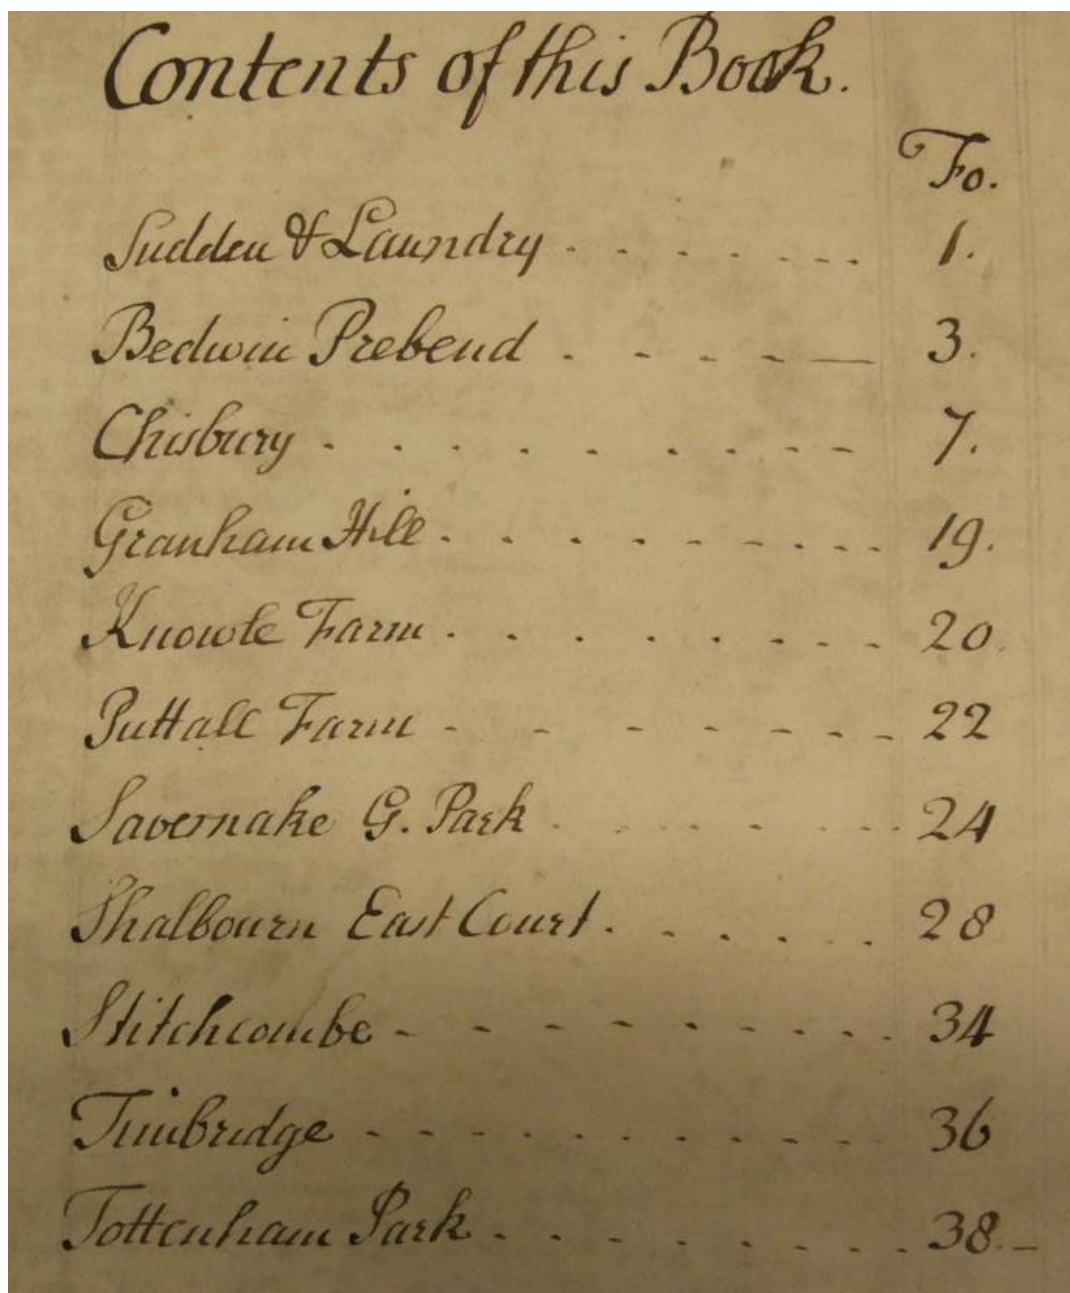 Contents of this Book.
Fo.
Sudden & Laundry . . . . . . . . 1.
Bedwin Prebend . - - - — 3.
Chisbury . . . . . . . - - - 7.
Granham Hill . . . . . . - - - - 19.
Knowle Farm . . . . . . - - - 20.
Puttall Farm - - - - - - - - 22
Savernake G. Park . . . . . - - - 24
Shalbourn East Court . . . . . . 28
Stitchcombe - - - - - - - - - 34
Timbridge - - - - - - - - - - 36
Tottenham Park . . . . . . . . . 38.-